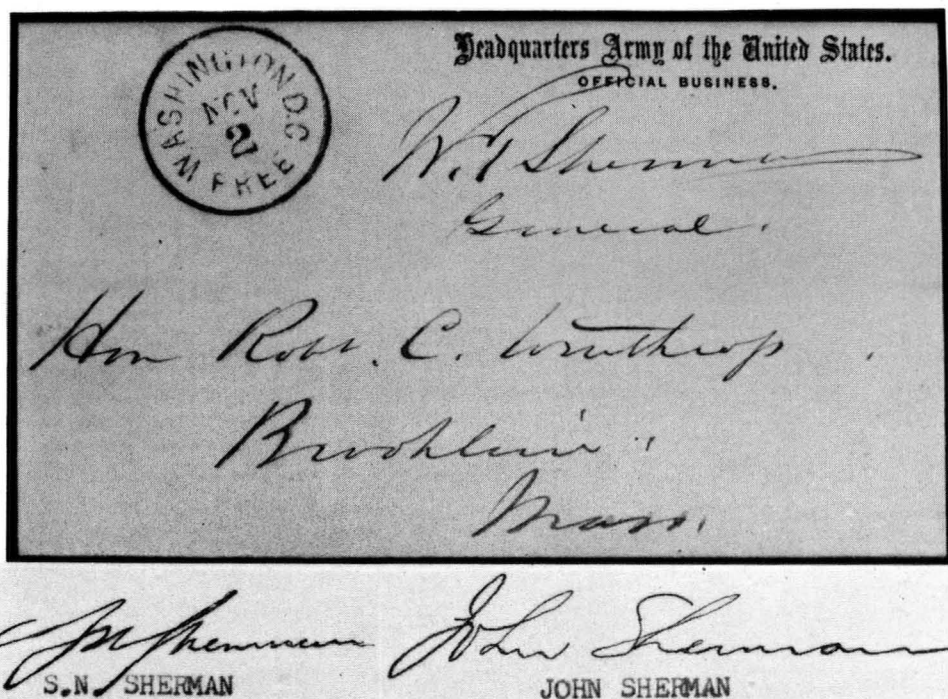 WASHINGTON D.C.
NOV
2
FREE
Headquarters Army of the United States.
OFFICIAL BUSINESS.
W. T Sherman
General.
Hon Robt. C. Winthrop
Brookline
Mass.
S N Sherman
John Sherman
S.N. SHERMAN
JOHN SHERMAN